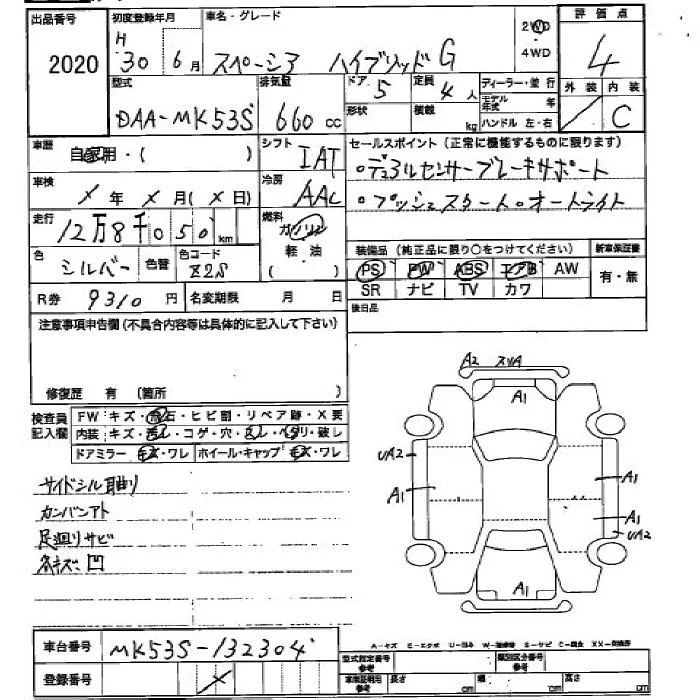 出品番号 初度登録年月 車名・グレード 2WD 評価点
2020 H 30 6月 スペーシア ハイブリッドG 4WD 4
型式 排気量 ドア 5 定員 4人 ディーラー・並行 外装 内装
DAA-MK53S 660cc 形状 積載 kg モデル年式 年 C
ハンドル 左・右
車歴 自家用・( ) シフト IAT セールスポイント(正常に機能するものに限ります)
車検 X年X月(X日) 冷房 AAC ○デュアルセンサーブレーキサポート
○プッシュスタート○オートライト
走行 12万8千050km 燃料 ガソリン
軽油
( )
色 シルバー 色替 色コード Z2S 装備品(純正品に限り○をつけてください) 新車保証書
PS PW ABS エアB AW 有・無
R券 9310円 名変期限 月 日 SR ナビ TV カワ
注意事項申告欄(不具合内容等は具体的に記入して下さい) 後日品
修復歴 有 (箇所 )
A2 スリA
A1
検査員記入欄 FW キズ・飛石・ヒビ割・リペア跡・X要
内装 キズ・汚れ・コゲ・穴・スレ・ヘタリ・破レ
ドアミラー キズ・ワレ ホイール・キャップ キズ・ワレ
UA2
A1 A1
A1
UA2
A1
サイドシル曲り
カンバンアト
足廻リサビ
各キズ凹
車台番号 MK53S-132304
登録番号 X
A-キズ E-エクボ U-ヨネ W-補修跡 S-サビ C-腐食 XX-交換済
型式指定番号 参考 類別区分番号 参考
車庫証明用 参考 長さ cm 幅 cm 高さ cm